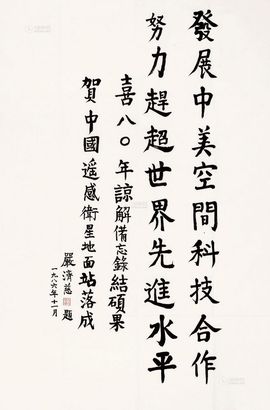 發展中美空間科技合作
努力趕超世界先進水平
喜八〇年諒解備忘錄結碩果
賀中國遥感衛星地面站落成
嚴濟慈題
一九八六年十一月